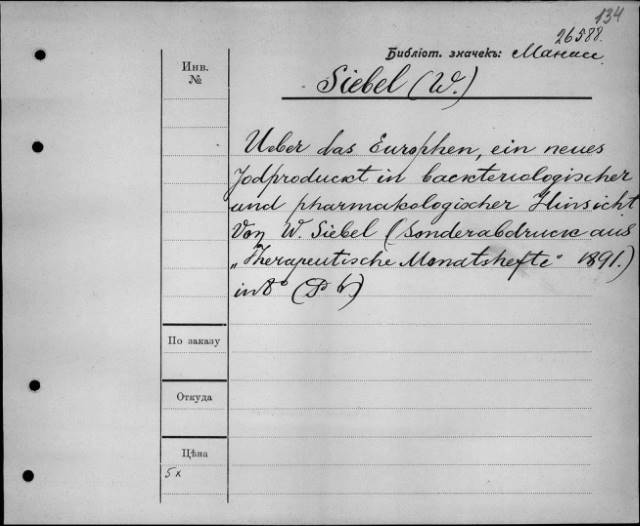 134
26588.
Библіот. значекъ: Манасс
Инв.
№
Siebel (W.)
Ueber das Europhen, ein neues
Jodproduckt in backteriologischer
und pharmakologischer Hinsicht
Von W. Siebel (Sonderabdruck aus
„Therapeutische Monatshefte" 1891.)
in 8° (D b)
По заказу
Откуда
Цѣна
5к